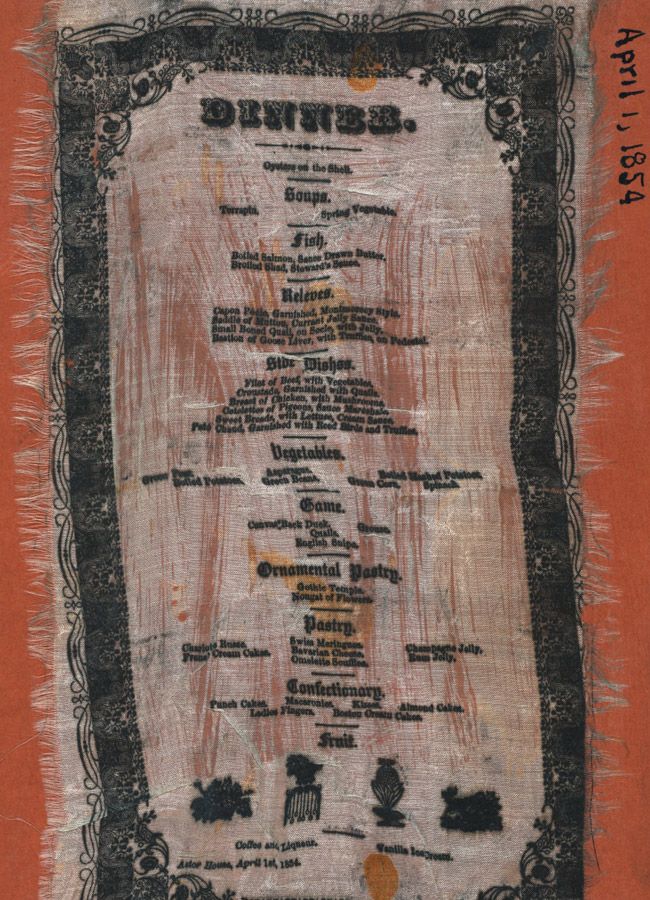 April 1, 1854
DINNER.
Oysters on the Shell.
Soups.
Terrapin. Spring Vegetable.
Fish.
Boiled Salmon, Sauce Drawn Butter.
Broiled Shad, Steward's Sauce.
Releves.
Capon Pasie, Garnished, Montmorency Style.
Saddle of Mutton, Currant Jelly Sauce.
Small Boned Quail, on Socle, with Jelly.
Bastion of Goose Liver, with Truffles, on Pedestal.
Side Dishes.
Filet of Beef, with Vegetables.
Croustade, Garnished with Quails.
of Chicken, with Mushrooms.
Cotelettes of Pigeons, Sauce Marechale.
Sweet Breads, with Lettuce, Cream Sauce.
Garnished with Reed Birds and Truffles.
Vegetables.
Green Peas. Asparagus. Boiled Mashed Potatoes.
Boiled Potatoes. Green Beans. Green Corn. Spinach.
Game.
Canvas Back Duck. Grouse.
Quails.
English Snipe.
Ornamental Pastry.
Gothic Temple.
Nougat of Flowers.
Pastry.
Charlote Russe. Swiss Meringues. Champagne Jelly.
Cream Cakes. Bavarian Cheese. Rum Jelly.
Omelette Souffles.
Confectionary.
Punch Cakes. Macaronies. Kisses. Almond Cakes.
Ladies Fingers. Boston Cream Cakes.
Fruit.
Coffee and Liqueurs. Vanilla Ice Cream.
Astor House, April 1st, 1854.